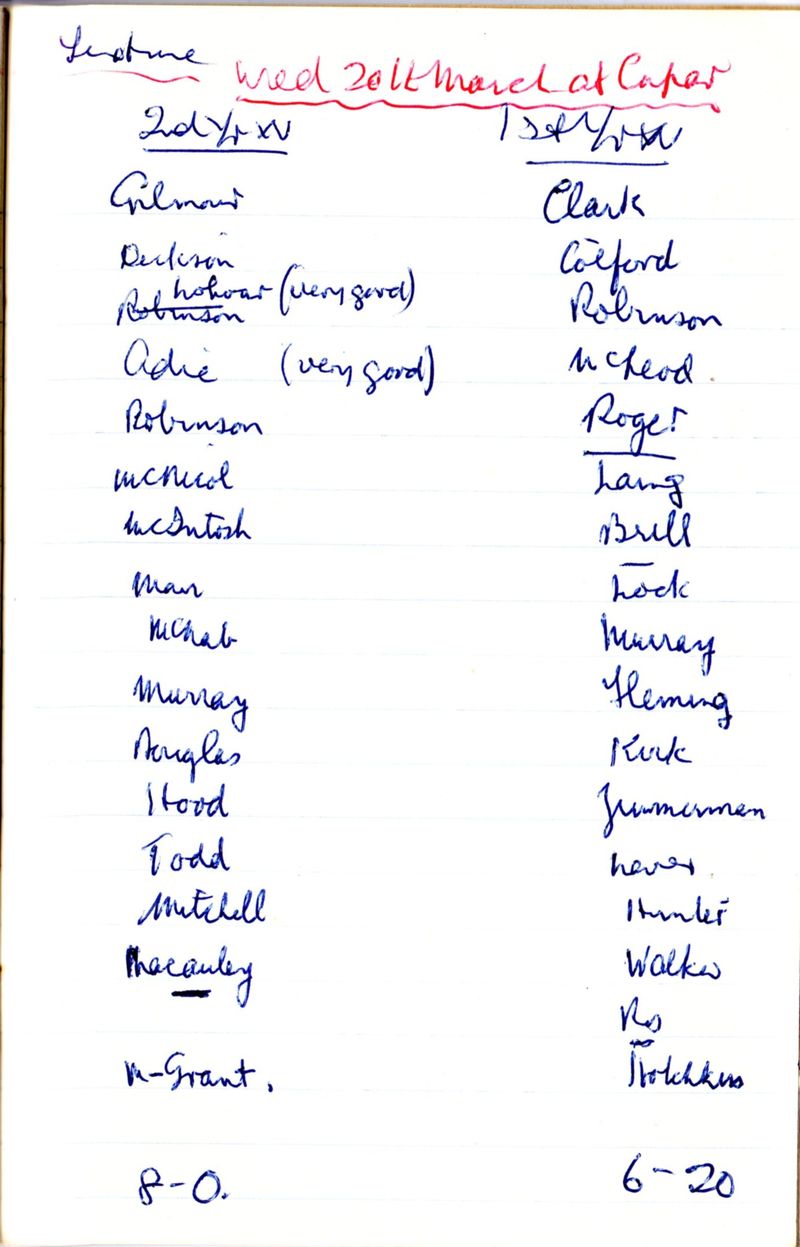 Wed 20th March at Cupar
2nd Yr XV
Gilmour
Dickson
Robinson (very good)
Adie (very good)
Robinson
McNicol
McIntosh
Mair
McNab
Murray
Douglas
Hood
Todd
Mitchell
Macauley
M-Grant.
8-0.
1st Yr XV
Clark
Colford
Robinson
McLeod
Roger
Laing
Brill
Lock
Murray
Fleming
Kirk
Zimmerman
Hunter
Walker
Hotchkiss
6-20